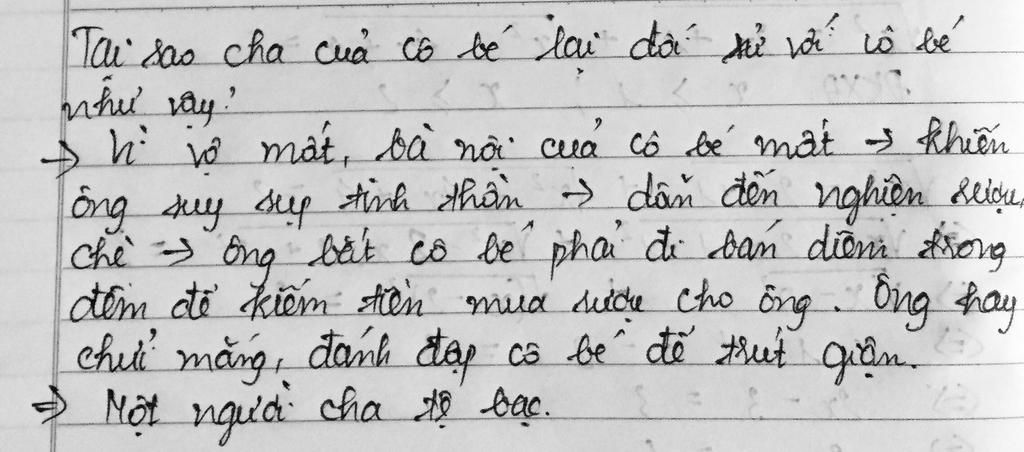 Tại sao cha của cô bé lại đối xử với cô bé
như vậy?
→ Vì vợ mất, bà nội của cô bé mất → khiến
ông suy sụp tinh thần → dẫn đến nghiện rượu,
chè → ông bắt cô bé phải đi bán diêm trong
đêm để kiếm tiền mua rượu cho ông. Ông hay
chửi mắng, đánh đập cô bé để trút giận.
⇒ Một người cha tệ bạc.